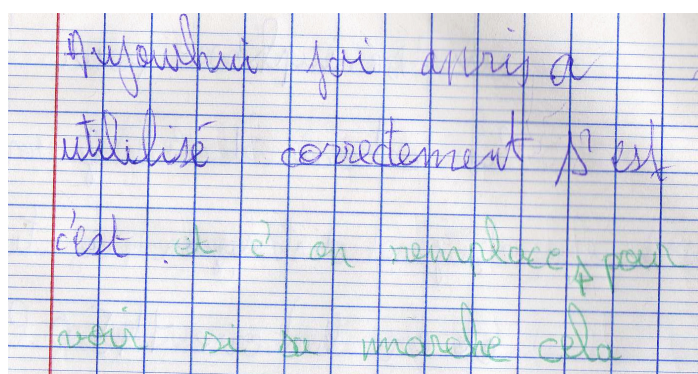 Aujourhui j'ai appris a
utililisé correctement s'est
c'est. et c' on remplace, pour
voir si sa marche cela